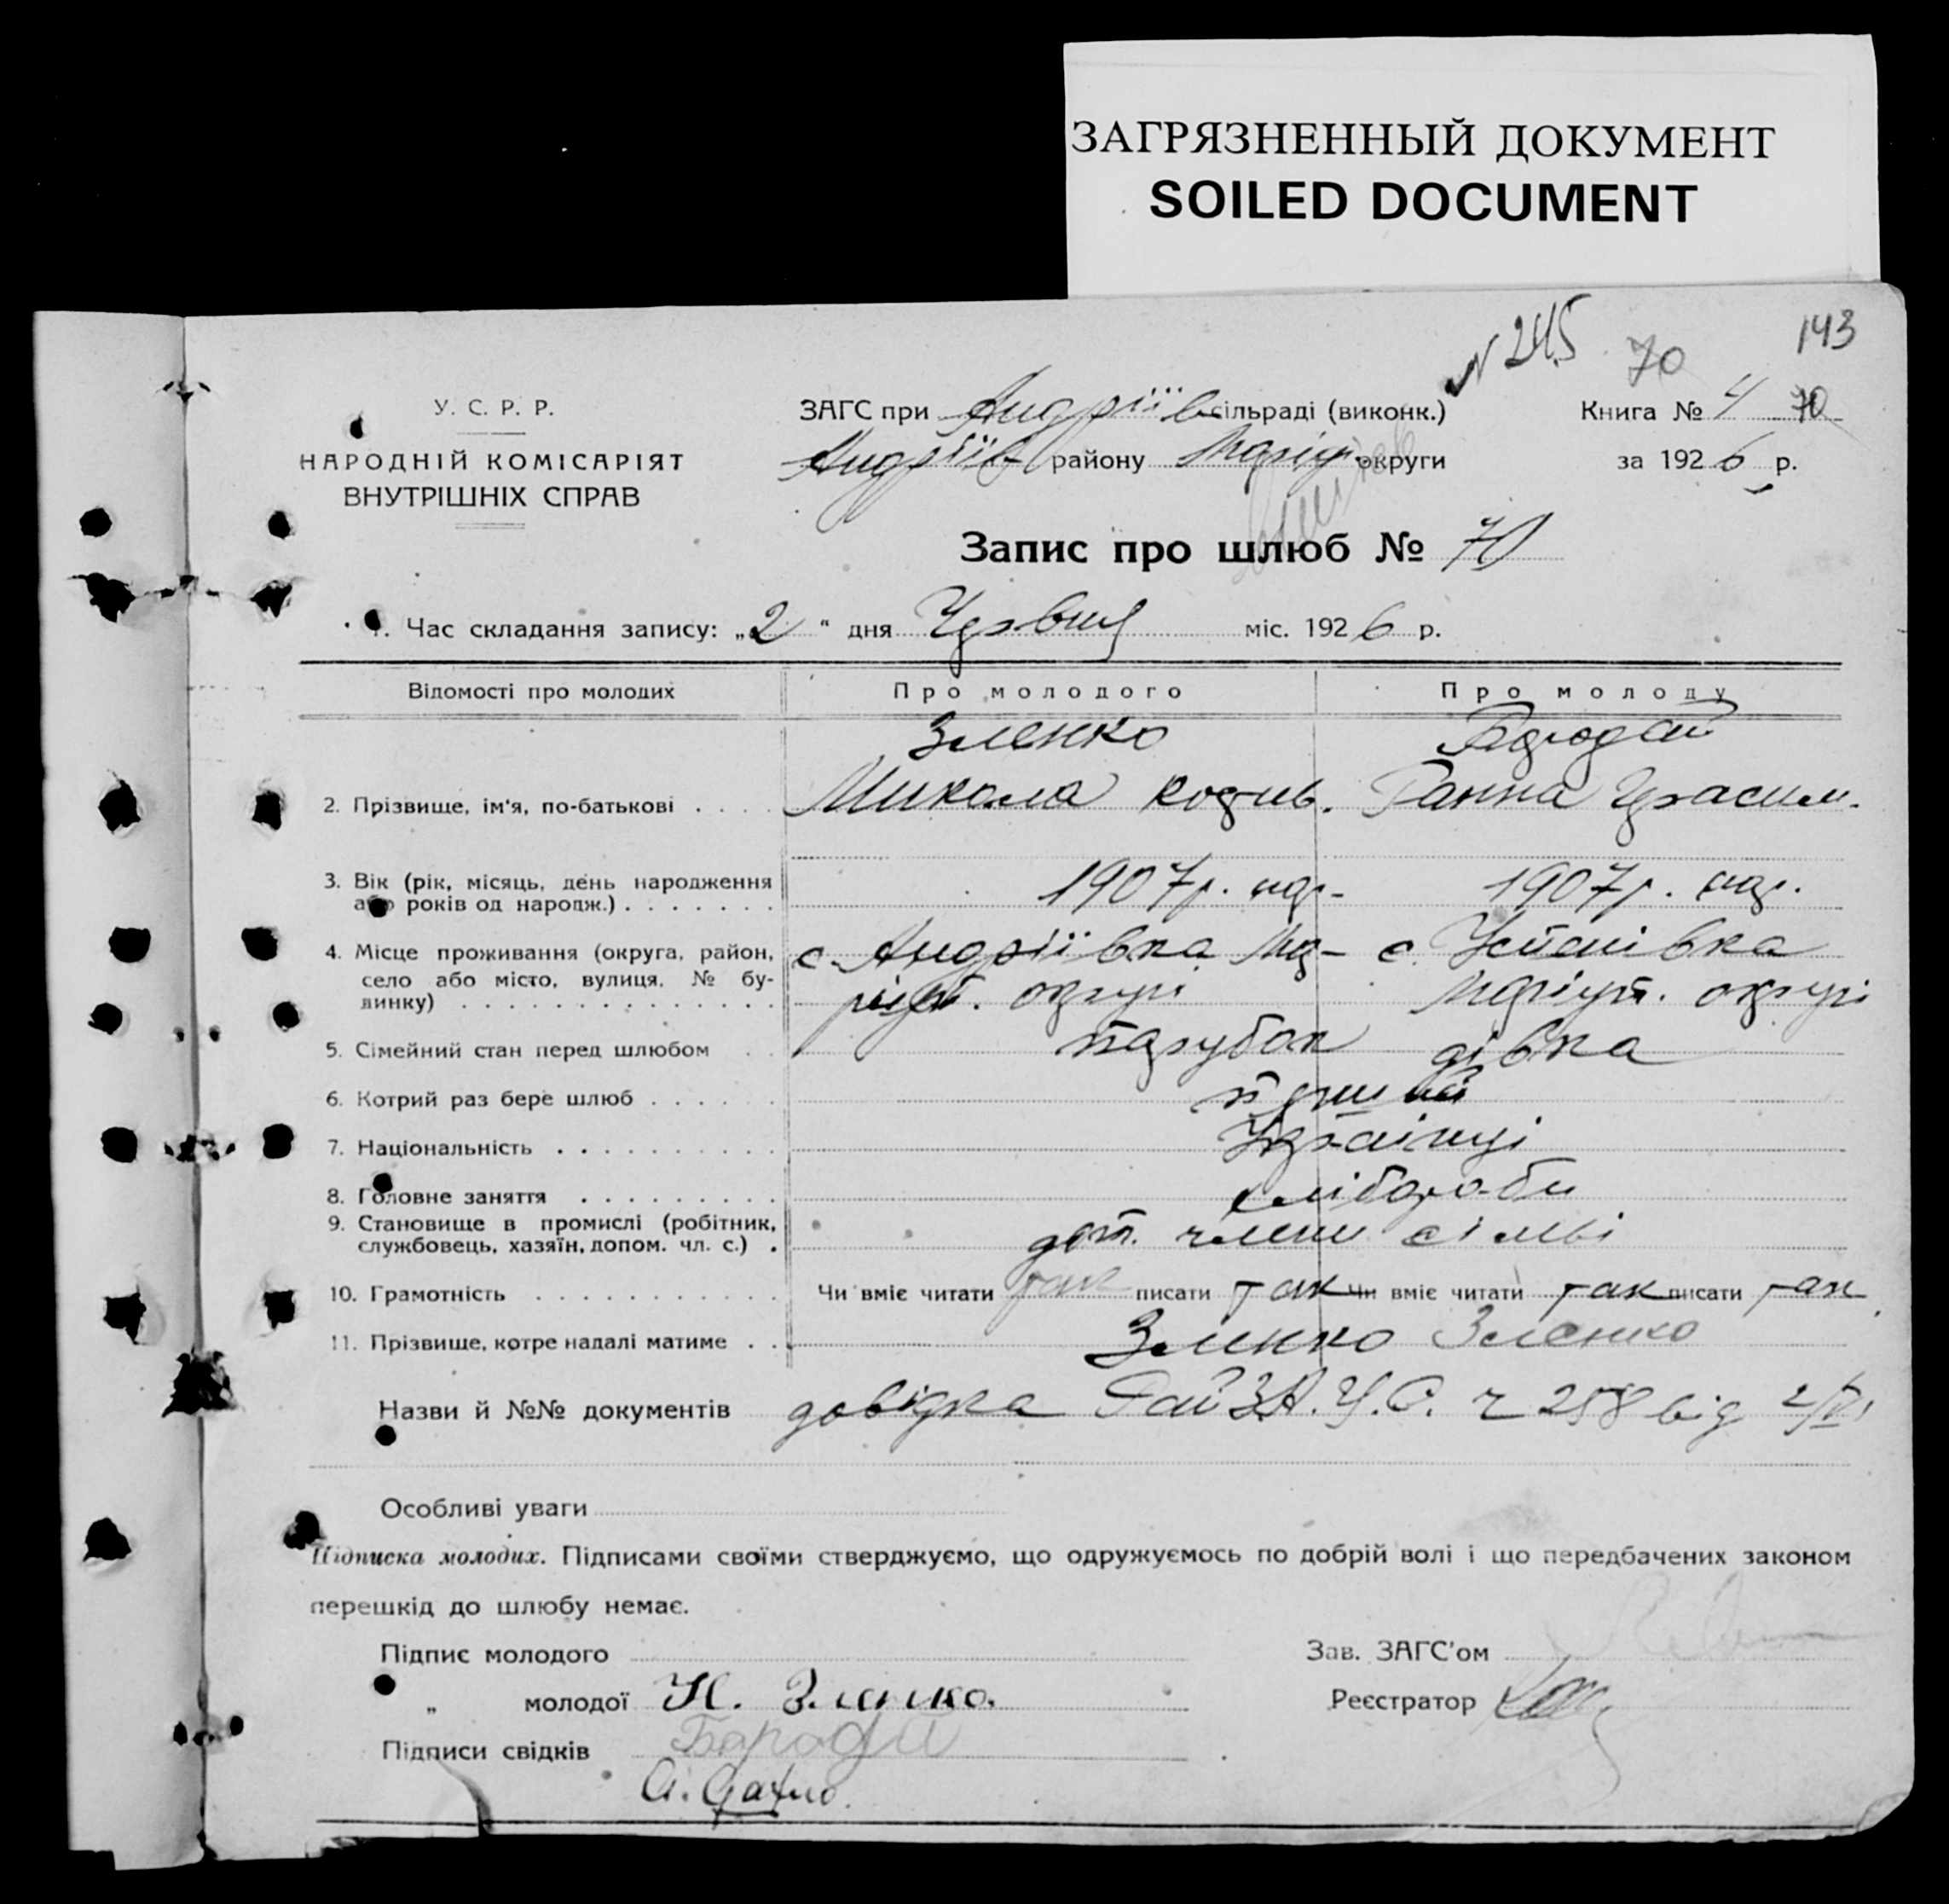 ЗАГРЯЗНЕННЫЙ ДОКУМЕНТ
SOILED DOCUMENT
N 245 70 143
У. С. Р. Р.
НАРОДНІЙ КОМІСАРІЯТ
ВНУТРІШНІХ СПРАВ
ЗАГС при Андріїв сільраді (виконк.)
Андріїв району Маріуп округи
Книга № 4 70
за 1926 р.
Запис про шлюб № 70
1. Час складання запису: „2“ дня Червня міс. 1926 р.
Відомості про молодих Про молодого Про молоду
Зленко Бородай
2. Прізвище, ім'я, по-батькові . . . . Микола Ганна Герасим.
3. Вік (рік, місяць, день народження
або років од народж.) . . . . . . . 1907 р. нар. 1907 р. нар.
4. Місце проживання (округа, район,
село або місто, вулиця, № бу-
динку) . . . . . . . . . . . . . .
с. Андріївка Ма- с.
ріуп. округи Маріуп. округи
5. Сімейний стан перед шлюбом . . парубок дівка
6. Котрий раз бере шлюб . . . . . . перший
7. Національність . . . . . . . . . . Українці
8. Головне заняття . . . . . . . . . хлібороби
9. Становище в промислі (робітник,
службовець, хазяїн, допом. чл. с.) .
доп. члени сімьі
10. Грамотність . . . . . . . . . . . Чи вміє читати так писати так Чи вміє читати так писати так
11. Прізвище, котре надалі матиме . . Зленко Зленко
Назви й №№ документів довідка РайЗА.У.С. ч 258 від 2/VI
Особливі уваги
Підписка молодих. Підписами своїми стверджуємо, що одружуємось по добрій волі і що передбачених законом
перешкід до шлюбу немає.
Підпис молодого
„ молодої Н. Зленко.
Підписи свідків Бородай
Зав. ЗАГС'ом
Реєстратор